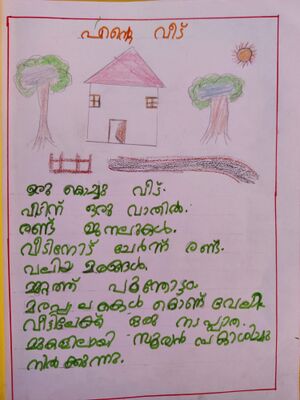 എന്റെ വീട്
ഒരു കൊച്ചു വീട്.
വീടിന് ഒരു വാതിൽ.
രണ്ട് ജനലുകൾ.
വീടിനോട് ചേർന്ന് രണ്ട്
വലിയ മരങ്ങൾ.
മുറ്റത്ത് പൂന്തോട്ടം
മരപ്പലകകൾ കൊണ്ട് വേലി.
വീട്ടിലേക്ക് ഒരു നടപ്പാത.
മുകളിലായി സൂര്യൻ പ്രകാശിച്ചു
നിൽക്കുന്നു.